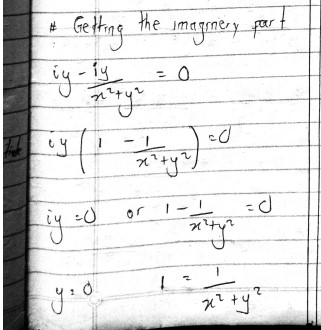 # Getting the imaginery part
iy - iy/(x²+y²) = 0
iy ( 1 - 1/(x²+y²) ) = 0
iy = 0 or 1 - 1/(x²+y²) = 0
y = 0 1 = 1/(x²+y²)